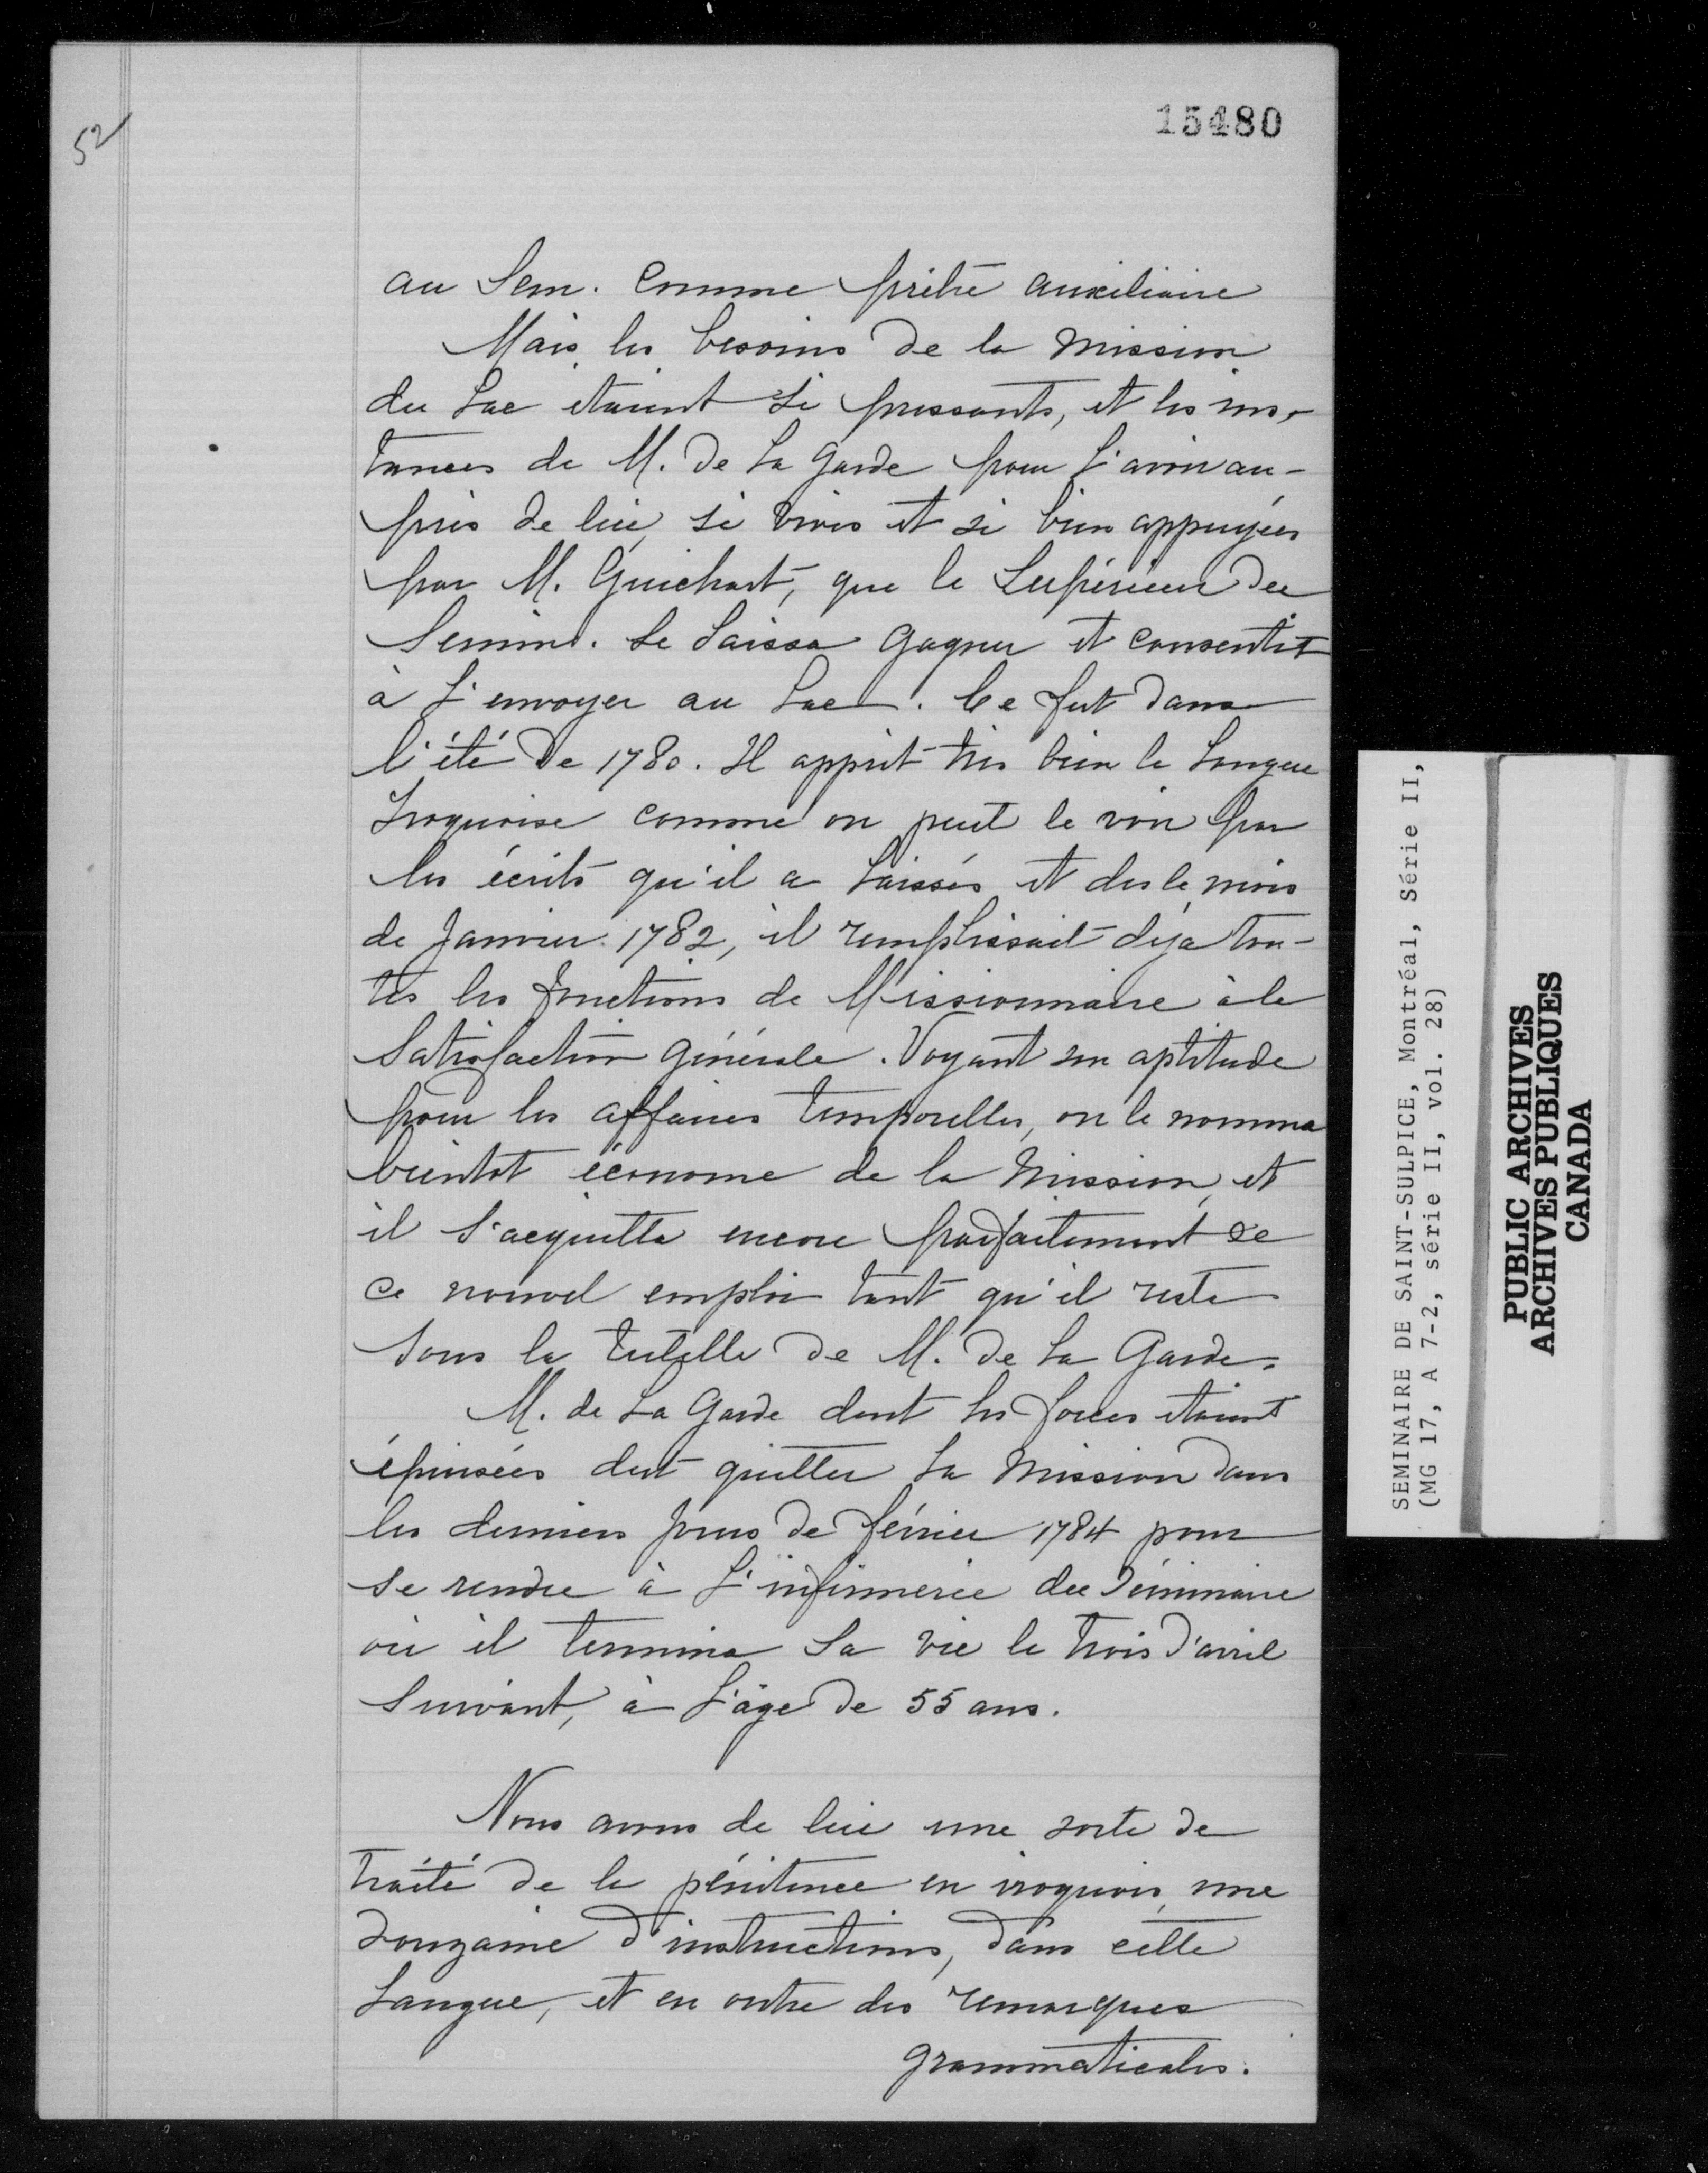 52
15480
au Sem. comme prêtre auxiliaire
Mais les besoins de la mission
du Lac etaient si pressants, et les ins-
tances de M. de La Garde pour l'avoir au-
près de lui, si vives et si bien appuyées
par M. Guichart, que le Supérieur du
Semin. se laissa gagner et consentit
à l'envoyer au Lac. Ce fut dans
l'été de 1780. Il apprit très bien la langue
Iroquoise comme on peut le voir par
les écrits qu'il a laissés et dès le mois
de Janvier 1782, il remplissait déja tou-
tes les fonctions de Missionnaire à la
satisfaction générale. Voyant son aptitude
pour les affaires temporelles, on le nomma
bientot économe de la mission, et
il s'acquitta encore parfaitement de
ce nouvel emploi tant qu'il resta
sous la tutelle de M. de La Garde.
M. de La Garde dont les forces etaient
épuisées dut quitter la mission dans
les derniers jours de février 1784 pour
se rendre à l'infirmerie du Séminaire
où il termina sa vie le trois d'avril
suivant, à l'âge de 55 ans.
Nous avons de lui une sorte de
traité de la pénitence en iroquois, une
douzaine d'instructions, dans cette
langue, et en outre des remarques
grammaticales.
SEMINAIRE DE SAINT-SULPICE, Montréal, Série II,
(MG 17, A 7-2, série II, vol. 28)
PUBLIC ARCHIVES
ARCHIVES PUBLIQUES
CANADA